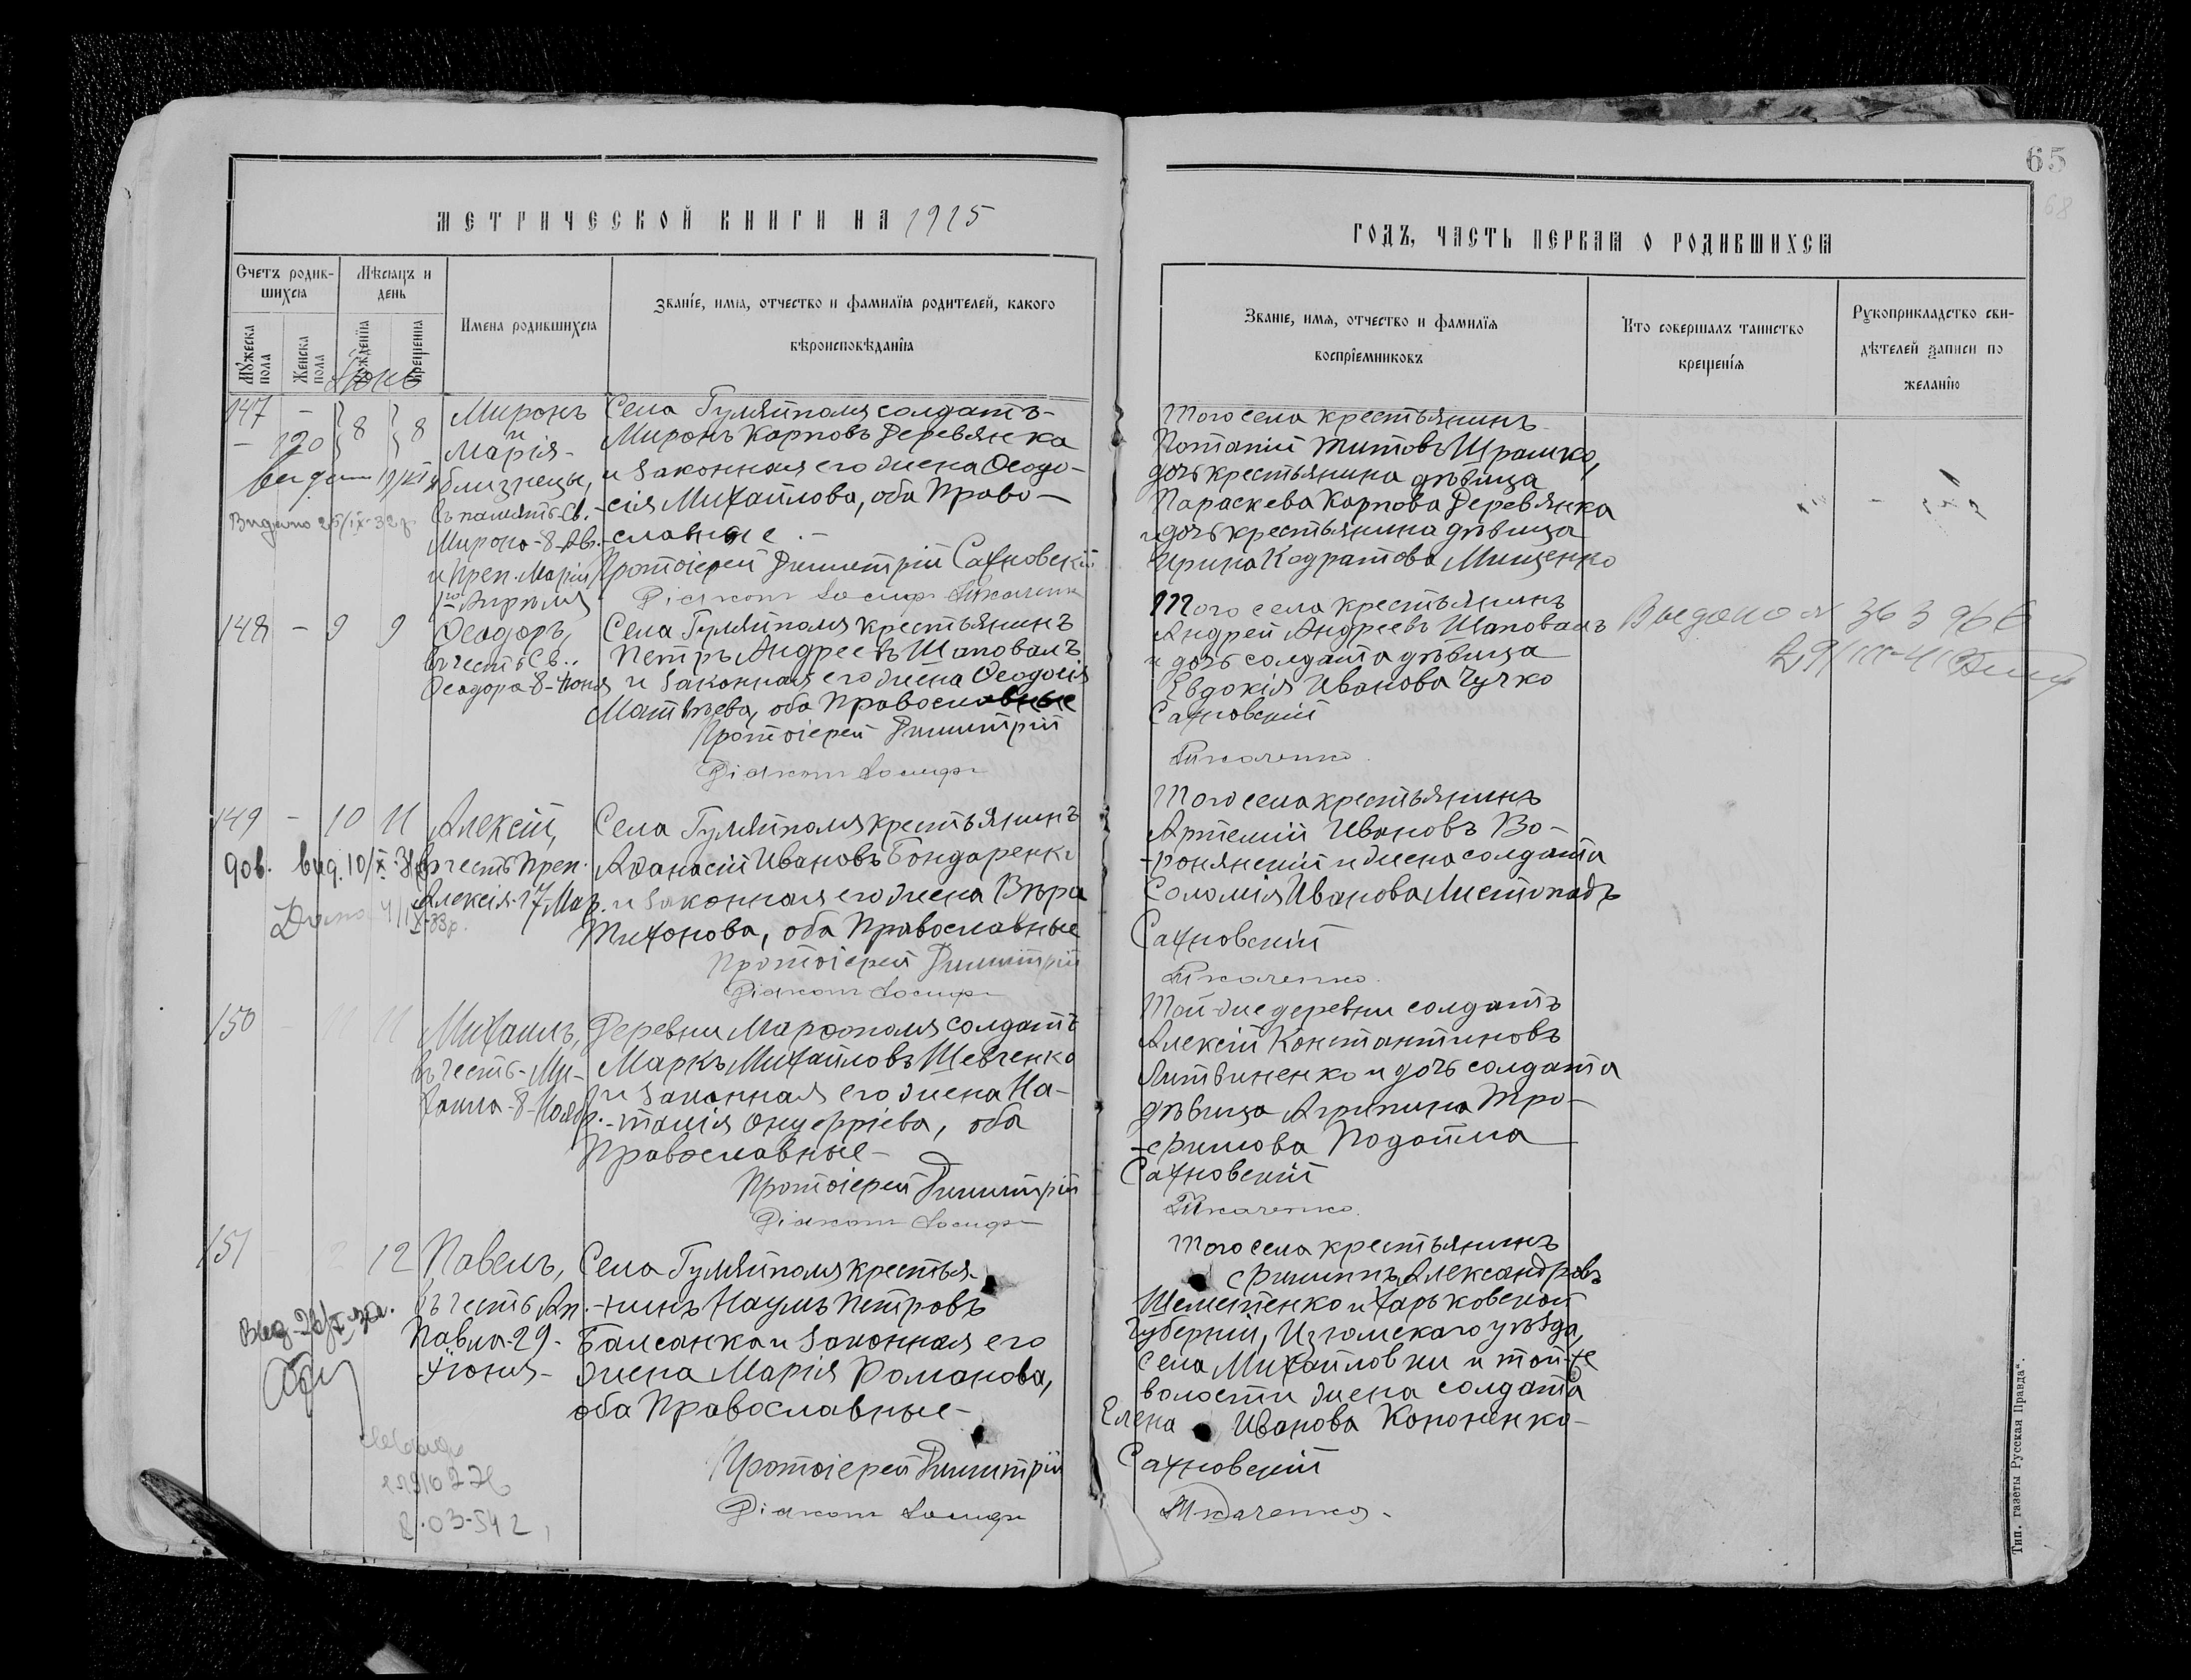 65
68
МЕТРИЧЕСКОЙ КНИГИ НА 1915
ГОДЪ, ЧАСТЬ ПЕРВАЯ О РОДИВШИХСЯ
Счетъ родив-
шихся
Мѣсяцъ и
день
Мужеска пола
Женска пола
Рожденія
Крещенія
Имена родившихся
Званіе, имя, отчество и фамилія родителей, какого
вѣроисповѣданія
Званіе, имя, отчество и фамилія
воспріемниковъ
Кто совершалъ таинство
крещенія
Рукоприкладство сви-
дѣтелей записи по
желанію
Іюнь
147 - 8 8
- 120
Миронъ
и
Марія-
близнецы,
въ память Св.
Мирона-8-Ав.
и Преп. Маріи
1го Апрѣля
Видано 25/IX-32р
Села Гуляйполя солдатъ-
Миронъ Карповъ Деревянка
и законная его жена Ѳеодо-
-сія Михайлова, оба Право-
-славные.-
Протоіерей Димитрій Сахновскій
Діаконъ Іосифъ Ткаченко
Того села крестьянинъ
Потапій Титовъ Шрамко,
дочь крестьянина дѣвица
Параскева Карпова Деревянка
и дочь крестьянина дѣвица
Ирина Кодратова Мищенко
148 - 9 9
Ѳеодоръ,
въ честь Св.
Ѳеодора-8-Іюня
Села Гуляйполя крестьянинъ
Петръ Андреевъ Шаповалъ
и законная его жена Ѳеодосія
Матвѣева, оба Православные
Протоіерей Димитрій
Діаконъ Іосифъ
Того села крестьянинъ
Андрей Андреевъ Шаповалъ
и дочь солдата дѣвица
Евдокія Иванова Чучко
Сахновскій
Ткаченко.
149 - 10 11
Алексій,
въ честь Преп.
Алексія-17 Мар.
Дов. вид. 10/X-3
Села Гуляйполя крестьянинъ
Аѳанасій Ивановъ Бондаренко
и законная его жена Вѣра
Тихонова, оба Православные
Протоіерей Димитрій
Діаконъ Іосифъ
Того села крестьянинъ
Артемій Ивановъ Во-
-ронянскій и жена солдата
Соломія Иванова Листопадъ
Сахновскій
Ткаченко.
150 - 11 11
Михаилъ,
въ честь-Ми-
хаила-8-Нояб.
Деревни Марфополя солдатъ
Маркъ Михайловъ Шевченко
и законная его жена На-
-талія Онуфріева, оба
Православные-
Протоіерей Димитрій
Діаконъ Іосифъ
Той-же деревни солдатъ
Алексій Константиновъ
Литвиненко и дочь солдата
дѣвица Агрипина Тро-
-фимова Подойма
Сахновскій
Ткаченко.
151 12
Павелъ,
въ честь Ап.
Павла-29-
Іюня-
Села Гуляйполя крестья-
-нинъ Наумъ Петровъ
Балсанка и законная его
жена Марія Романова,
оба Православные-
Протоіерей Димитрій
Діаконъ Іосифъ
Того села крестьянинъ
Филиппъ Александровъ
Шеметенко и Харьковской
Губерніи, Изюмскаго уѣзда,
села Михайловки и той-же
волости жена солдата
Елена Иванова Кононенко-
Сахновскій
Ткаченко.
Тип. газеты „Русская Правда“.